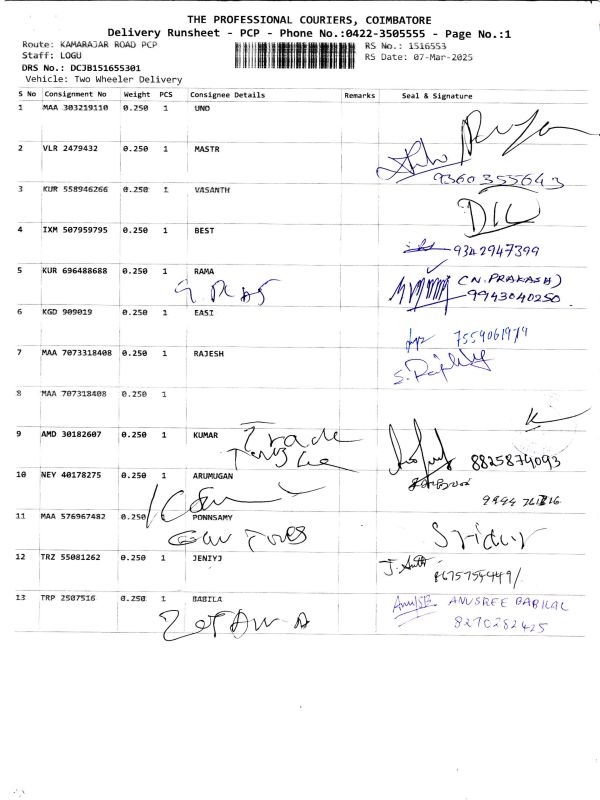 THE PROFESSIONAL COURIERS, COIMBATORE
Delivery Runsheet - PCP - Phone No.:0422-3505555 - Page No.:1
Route: KAMARAJAR ROAD PCP RS No.: 1516553
Staff: LOGU RS Date: 07-Mar-2025
DRS No.: DCJB151655301
Vehicle: Two Wheeler Delivery
S No Consignment No Weight PCS Consignee Details Remarks Seal & Signature
1 MAA 303219110 0.250 1 UNO
2 VLR 2479432 0.250 1 MASTR
9360355643
3 KUR 558946266 0.250 1 VASANTH
4 IXM 507959795 0.250 1 BEST
9342947399
5 KUR 696488688 0.250 1 RAMA
(N. PRAKASH)
9943040250
6 KGD 909019 0.250 1 EASI
7554061974
7 MAA 7073318408 0.250 1 RAJESH
8 MAA 707318408 0.250 1
9 AMD 30182607 0.250 1 KUMAR
Trade
8825874093
10 NEY 40178275 0.250 1 ARUMUGAN
11 MAA 576967482 0.250 1 PONNSAMY
12 TRZ 55081262 0.250 1 JENIYJ
13 TRP 2507516 0.250 1 BABILA
ANUSREE BABILAL
8270282425